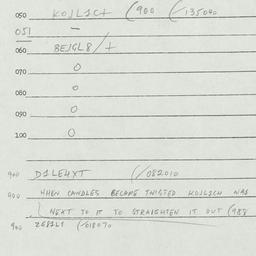 050 KOJLICH (900 (/135040
051 —
060 BEJGL8/+
070 0
080 0
090 0
100 0
900 D1LE4XT (/082010
900 WHEN CANDLES BECOME TWISTED KOJLICH WAS
NEXT TO IT TO STRAIGHTEN IT OUT (988
900 ZE81L1 (/018070